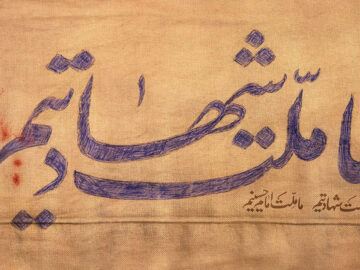 ما ملّت شهادتیم
ملت شهادتیم ما ملت امام حسینیم